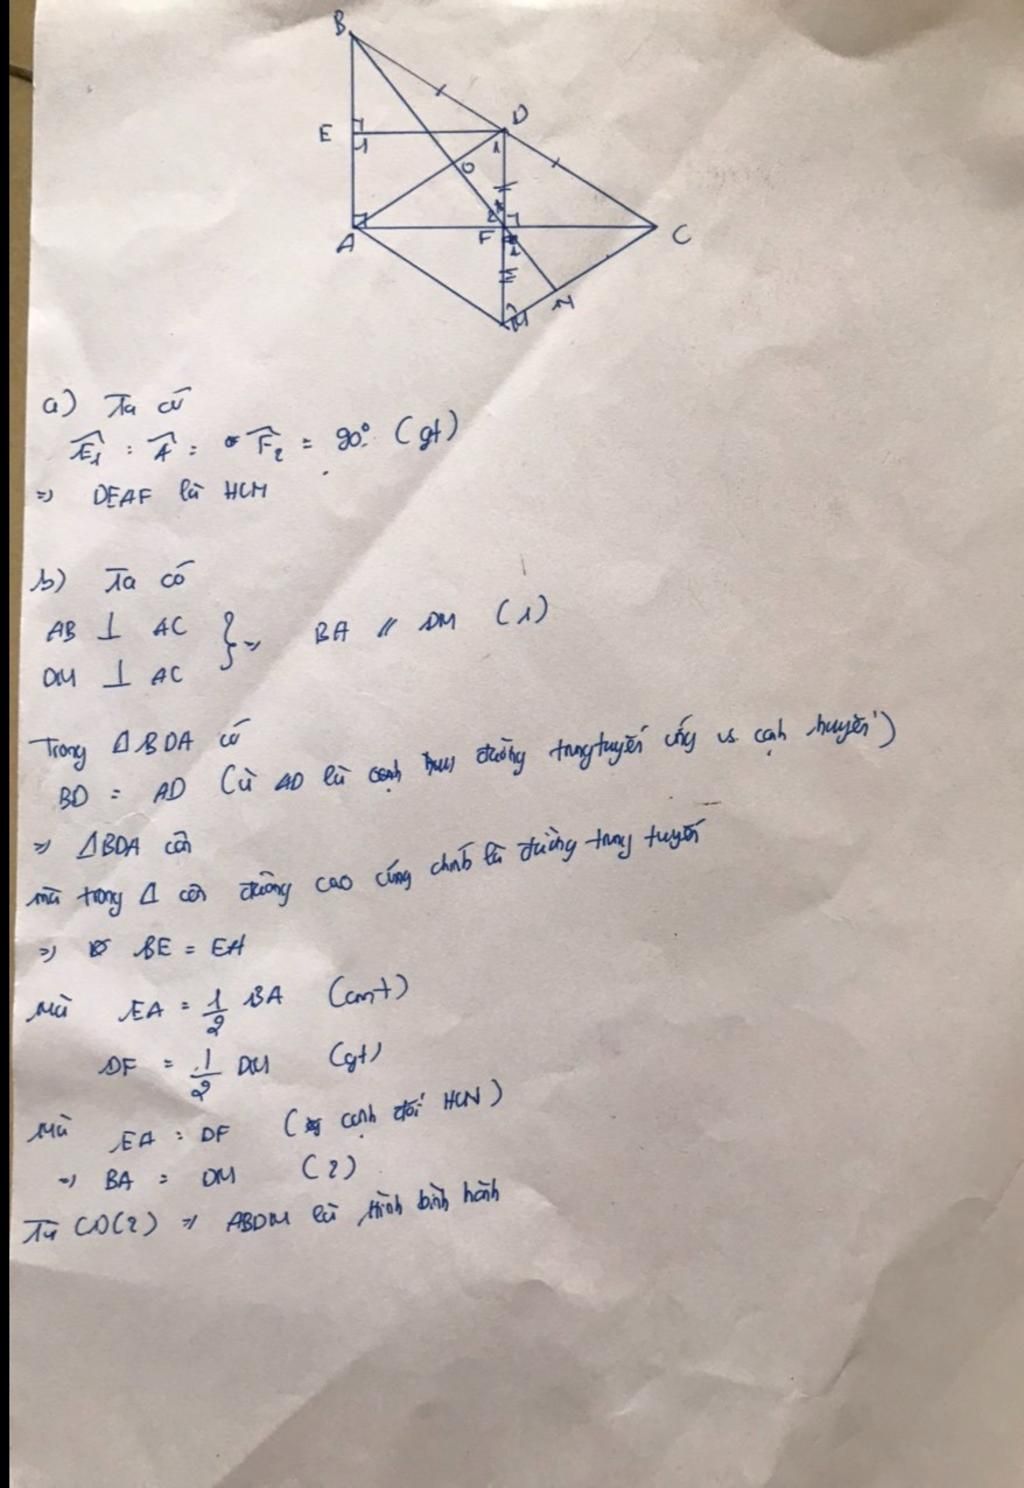 B
E
D
1
1
O
A
2
F
1
C
N
M
a) Ta có
Ê1 = Â = F̂2 = 90° (gt)
=> DEAF là HCN
b) Ta có
AB ⊥ AC
DM ⊥ AC
} => BA // DM (1)
Trong Δ BDA có
BD = AD (Vì AD là đường trung tuyến ứng vs cạnh huyền)
=> ΔBDA cân
mà trong Δ cân đường cao cũng chính là đường trung tuyến
=> BE = EA
Mà EA = 1/2 BA (cmt)
DF = 1/2 DM (gt)
Mà EA = DF (cạnh đối HCN)
=> BA = DM (2)
Từ (1)(2) => ABDM là hình bình hành